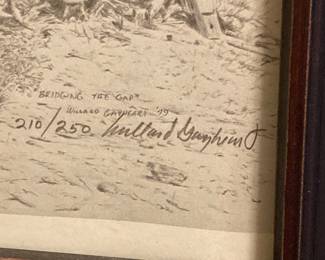 "BRIDGING THE GAP"
WILLARD GAYHEART '79
210/250 Willard Gayheart